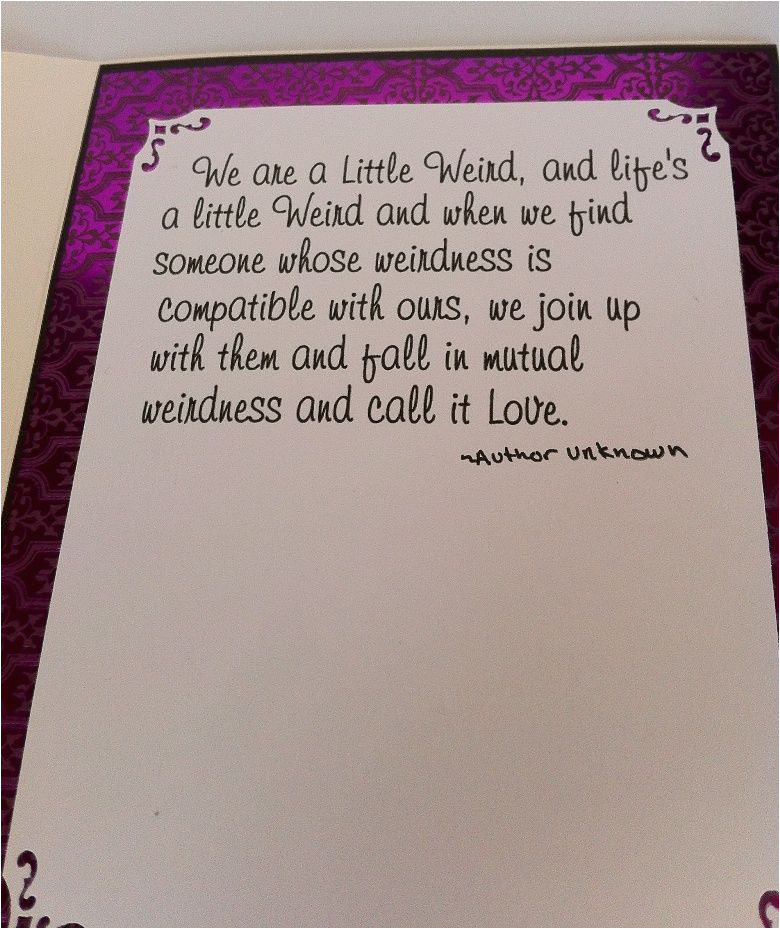 We are a Little Weird, and life's
a little Weird and when we find
someone whose weirdness is
compatible with ours, we join up
with them and fall in mutual
weirdness and call it Love.
~Author Unknown